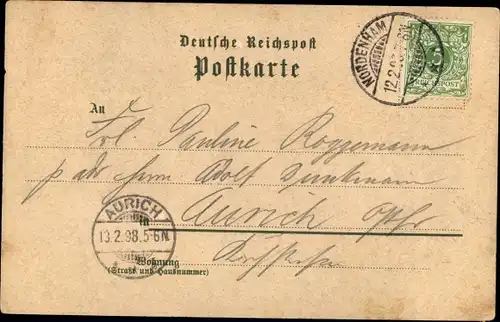 Deutsche Reichspost
Postkarte
NORDENHAM
12.2.98
An
Frl. Pauline Roggemann
p adr Herrn Adolf
in Aurich Ostfr.
AURICH
13.2.98.5-6N.
Wohnung
(Straße und Hausnummer)